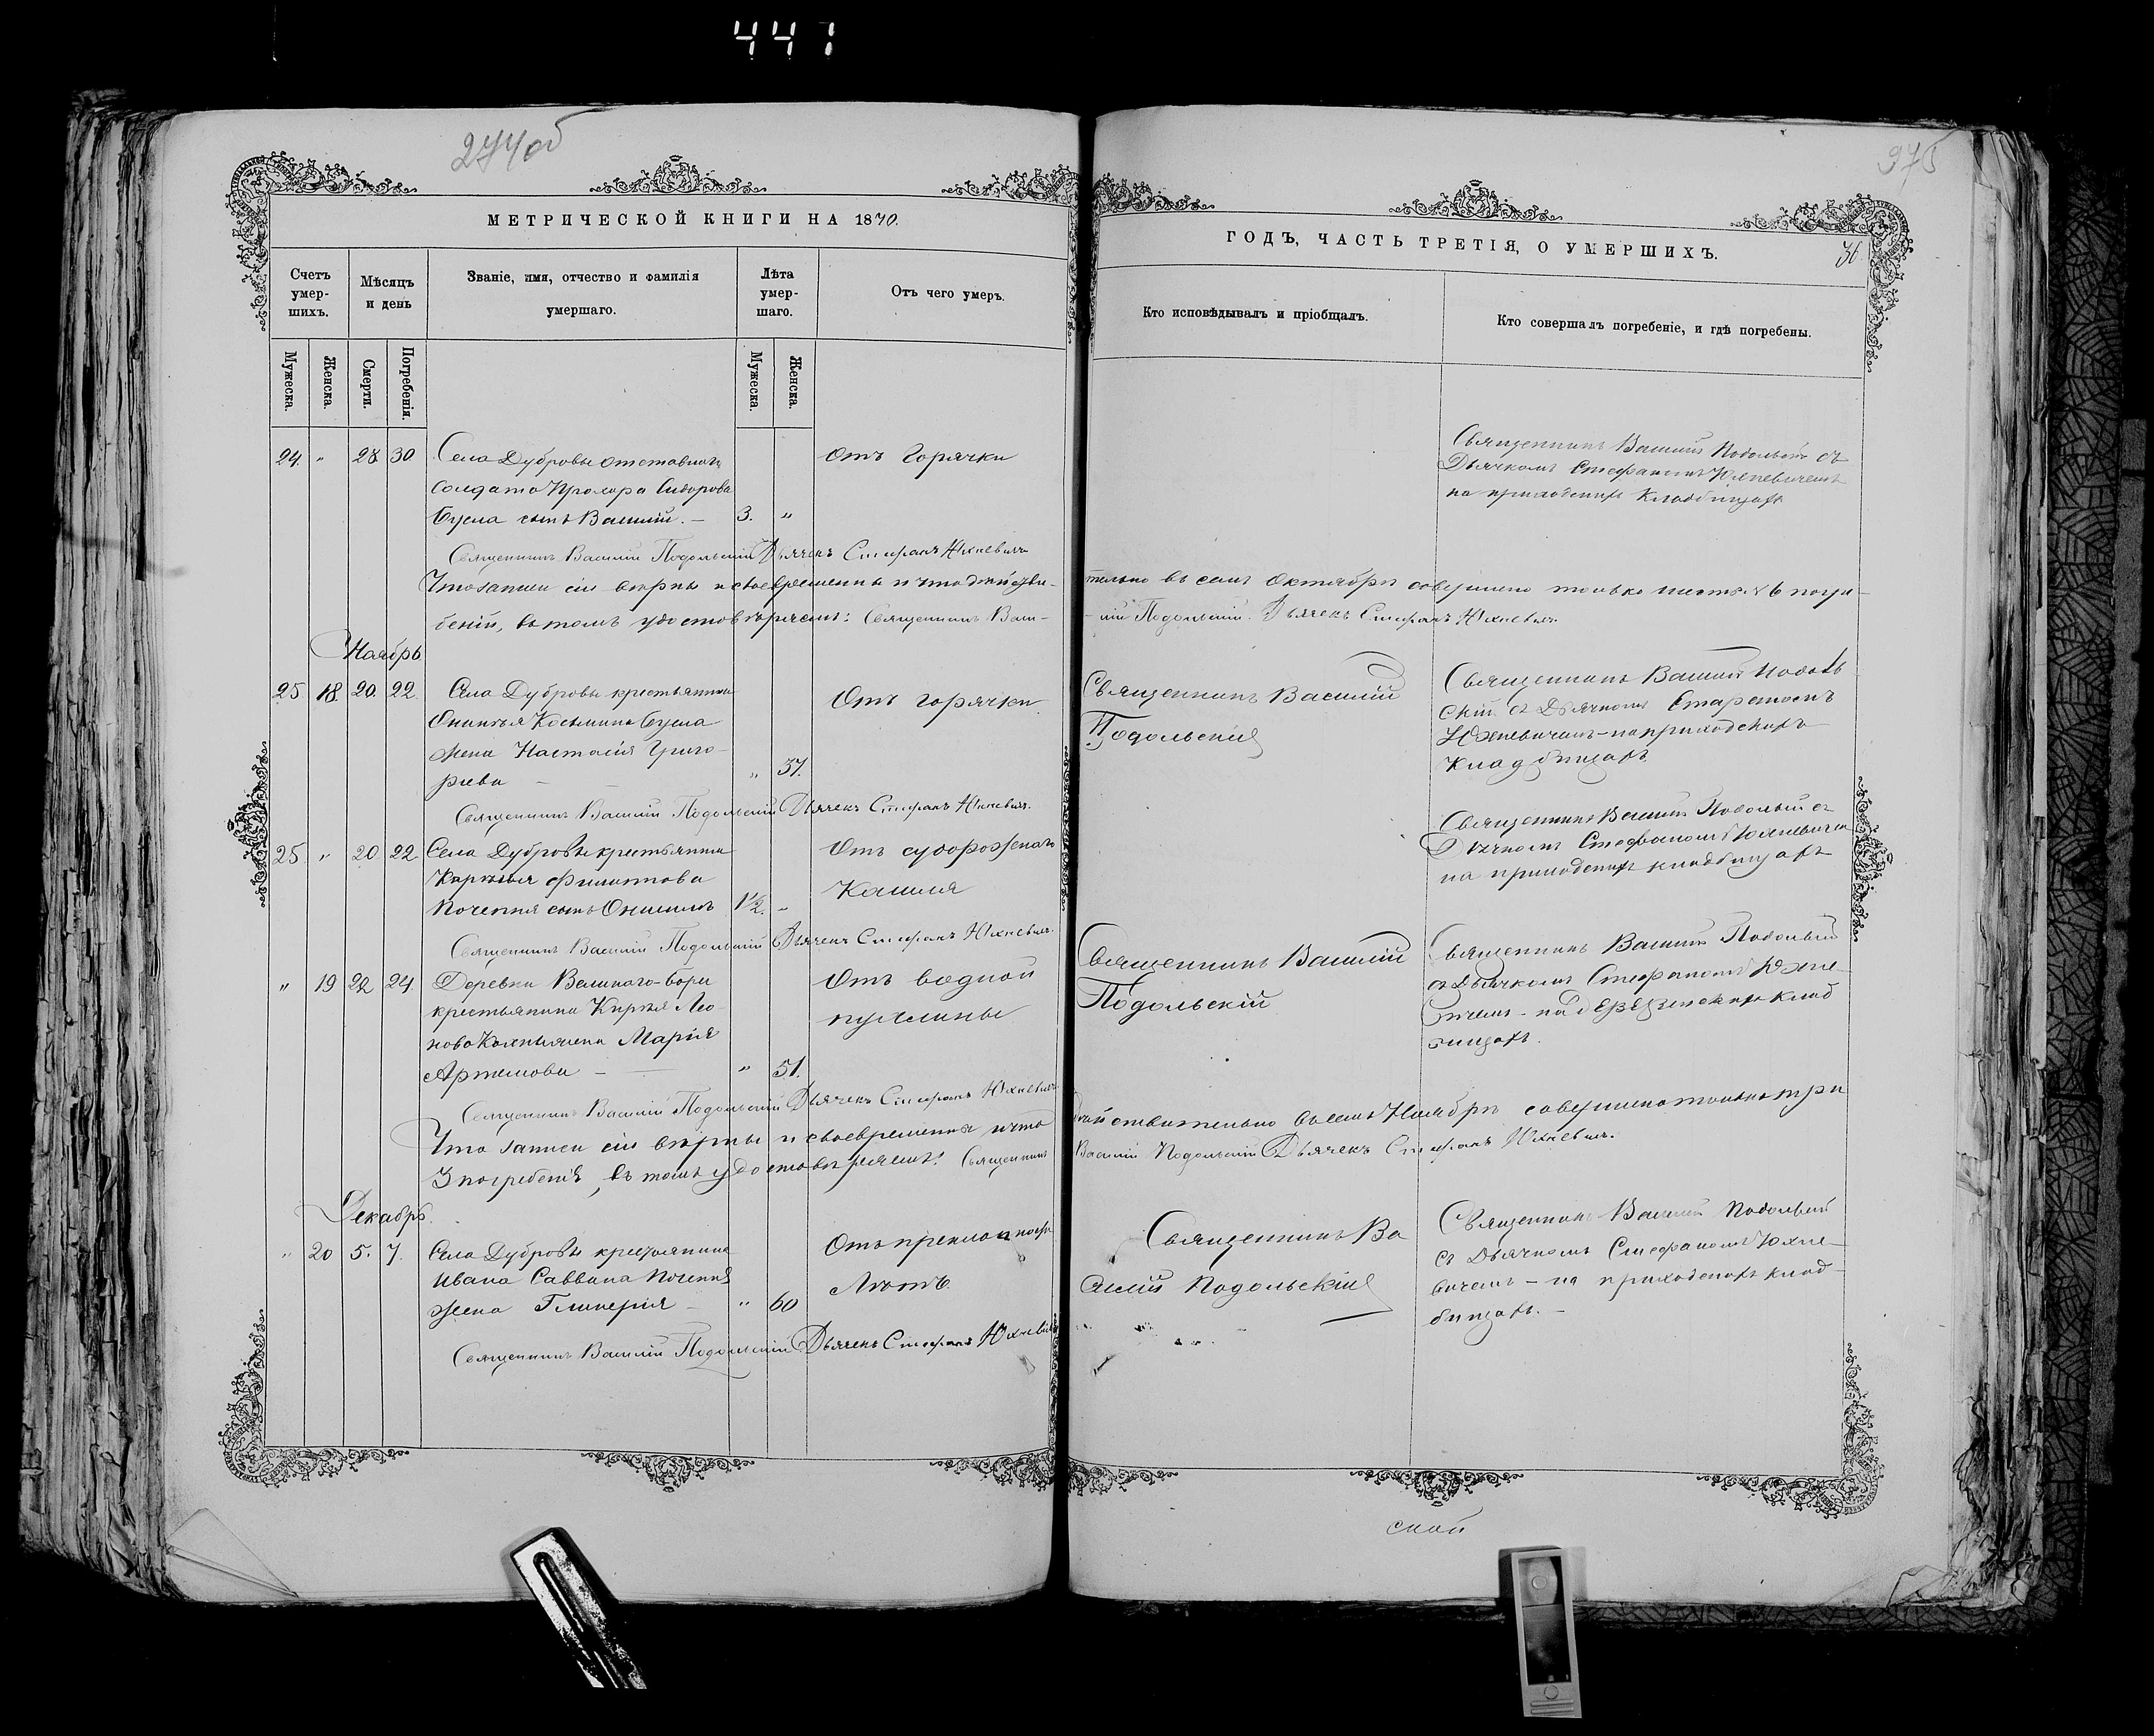 441
274об
975
МЕТРИЧЕСКОЙ КНИГИ НА 1870.
ГОДЪ, ЧАСТЬ ТРЕТІЯ, О УМЕРШИХЪ.
36
Счетъ умер-шихъ.
Мѣсяцъ и день
Званіе, имя, отчество и фамилія умершаго.
Лѣта умер-шаго.
Отъ чего умеръ.
Кто исповѣдывалъ и пріобщалъ.
Кто совершалъ погребеніе, и гдѣ погребены.
Мужеска.
Женска.
Смерти.
Погребенія.
Мужеска.
Женска.
24. " 28 30
Села Дубровы отставнаго
солдата Прохора Сидорова
Бусла сынъ Василій. — 3. "
Отъ горячки
Священникъ Василій Подольскій съ
Дьячкомъ Стефаномъ Юхневичемъ
на приходскихъ кладбищахъ
Священникъ Василій Подольскій Дьячекъ Стефанъ Юхневичъ
Что записи сіи вѣрны и своевременны и что дѣйстви-
тельно въ семъ Октябрѣ совершено только шесть 6 погре-
беній, въ томъ удостовѣряемъ: Священникъ Васи-
-лій Подольскій. Дьячекъ Стефанъ Юхневичъ
Ноябрь
25 18. 20. 22
Села Дубровы крестьянина
Космина Бусла
жена Настасія Григо-
рьева — " 37.
Отъ горячки
Священникъ Василій
Подольскій
Священникъ Василій Подоль
скій съ Дьячкомъ
Юхневичемъ - на приходскихъ
кладбищахъ
Священникъ Василій Подольскій Дьячекъ Стефанъ Юхневичъ.
25 " 20 22
Села Дубровы крестьянина
Филиппова
сынъ Онисимъ 1½. "
Отъ судорожнаго
кашля
Священникъ Василій Подольскій съ
Дьячкомъ Стефаномъ Юхневичемъ
на приходскихъ кладбищахъ
Священникъ Василій Подольскій Дьячекъ Стефанъ Юхневичъ.
" 19 22 24.
Деревни Велинаго-бора
крестьянина
жена Марія
Артемова — " 51.
Отъ водной
пухлины
Священникъ Василій
Подольскій
Священникъ Василій Подольскій
съ Дьячкомъ Стефаномъ Юхне-
вичемъ - на деревенскихъ клад
бищахъ.
Священникъ Василій Подольскій Дьячекъ Стефанъ Юхневичъ
Что записи сіи вѣрны и своевременны и что
дѣйствительно въ семъ Ноябрѣ совершено только три
3 погребенія, въ томъ удостовѣряемъ: Священникъ
Василій Подольскій Дьячекъ Стефанъ Юхневичъ.
Декабрь.
" 20 5. 7.
Села Дубровы крестьянина
Ивана Саввина
жена Гликерія — " 60
Отъ преклонности
лѣтъ.
Священникъ Ва
силій Подольскій
Священникъ Василій Подольскій
съ Дьячкомъ Стефаномъ Юхне-
вичемъ - на приходскихъ клад-
бищахъ. —
Священникъ Василій Подольскій Дьячекъ Стефанъ Юхневичъ
ской